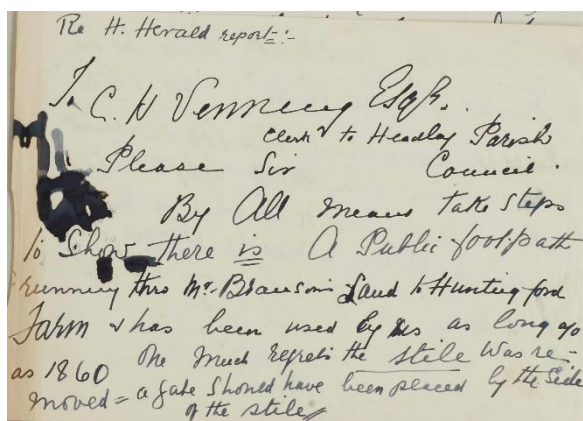 Re H. Herald report:-
To C. H Venning Esqr.
Clerk to Headley Parish
Please Sir Council.
By All means take Steps
to Show there is A Public footpath
running thro Mr. Branson's Land to Huntingford
Farm & has been used by us as long ago
as 1860 One Much regrets the stile was re-
moved = a gate should have been placed by the side
of the stile